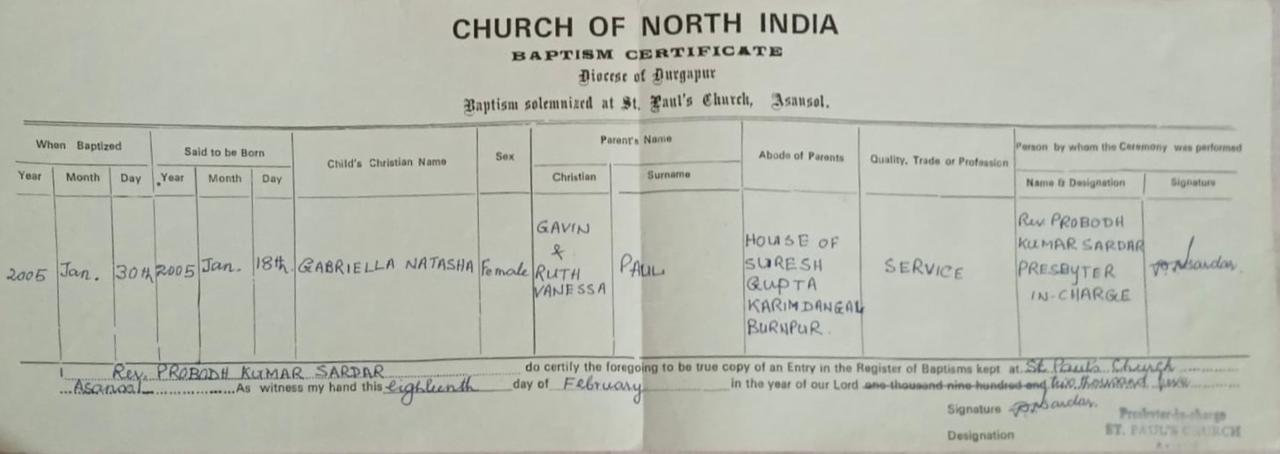 CHURCH OF NORTH INDIA
BAPTISM CERTIFICATE
Diocese of Durgapur
Baptism solemnized at St. Paul's Church, Asansol.
When Baptized Said to be Born Child's Christian Name Sex Parent's Name Abode of Parents Quality, Trade or Profession Person by whom the Ceremony was performed
Year Month Day Year Month Day Christian Surname Name & Designation Signature
2005 Jan. 30th 2005 Jan. 18th GABRIELLA NATASHA Female
GAVIN
&
RUTH
VANESSA
PAUL
HOUSE OF
SURESH
GUPTA
KARIMDANGAL
BURNPUR.
SERVICE
Rev. PROBODH
KUMAR SARDAR
PRESBYTER
IN-CHARGE
I Rev. PROBODH KUMAR SARDAR do certify the foregoing to be true copy of an Entry in the Register of Baptisms kept at St. Paul's Church
Asansol As witness my hand this eighteenth day of February in the year of our Lord one thousand nine hundred and two thousand five
Signature
Presbyter-in-charge
Designation
ST. PAUL'S CHURCH